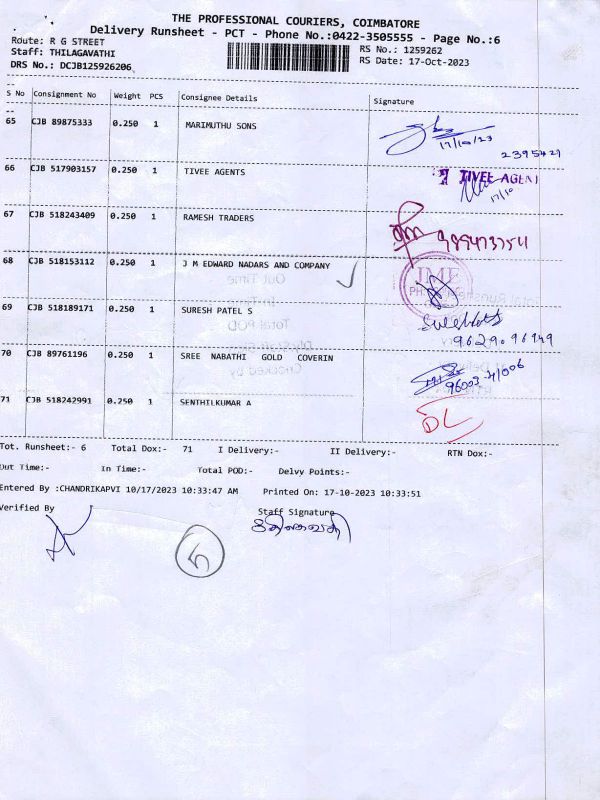 THE PROFESSIONAL COURIERS, COIMBATORE
Delivery Runsheet - PCT - Phone No.:0422-3505555 - Page No.:6
Route: R G STREET
RS No.: 1259262
Staff: THILAGAVATHI
RS Date: 17-Oct-2023
DRS No.: DCJB125926206
S No Consignment No Weight PCS Consignee Details Signature
65 CJB 89875333 0.250 1 MARIMUTHU SONS
17/10/23
2395421
66 CJB 517903157 0.250 1 TIVEE AGENTS TIVEE AGENT
17/10
67 CJB 518243409 0.250 1 RAMESH TRADERS
68 CJB 518153112 0.250 1 J M EDWARD NADARS AND COMPANY JME
69 CJB 518189171 0.250 1 SURESH PATEL S
9629096149
70 CJB 89761196 0.250 1 SREE NABATHI GOLD COVERIN
71 CJB 518242991 0.250 1 SENTHILKUMAR A DL
Tot. Runsheet:- 6 Total Dox:- 71 I Delivery:- II Delivery:- RTN Dox:-
Out Time:- In Time:- Total POD:- Delvy Points:-
Entered By :CHANDRIKAPVI 10/17/2023 10:33:47 AM Printed On: 17-10-2023 10:33:51
Verified By Staff Signature
5